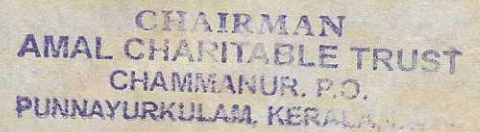 CHAIRMAN
AMAL CHARITABLE TRUST
CHAMMANUR. P.O.
PUNNAYURKULAM, KERALA,